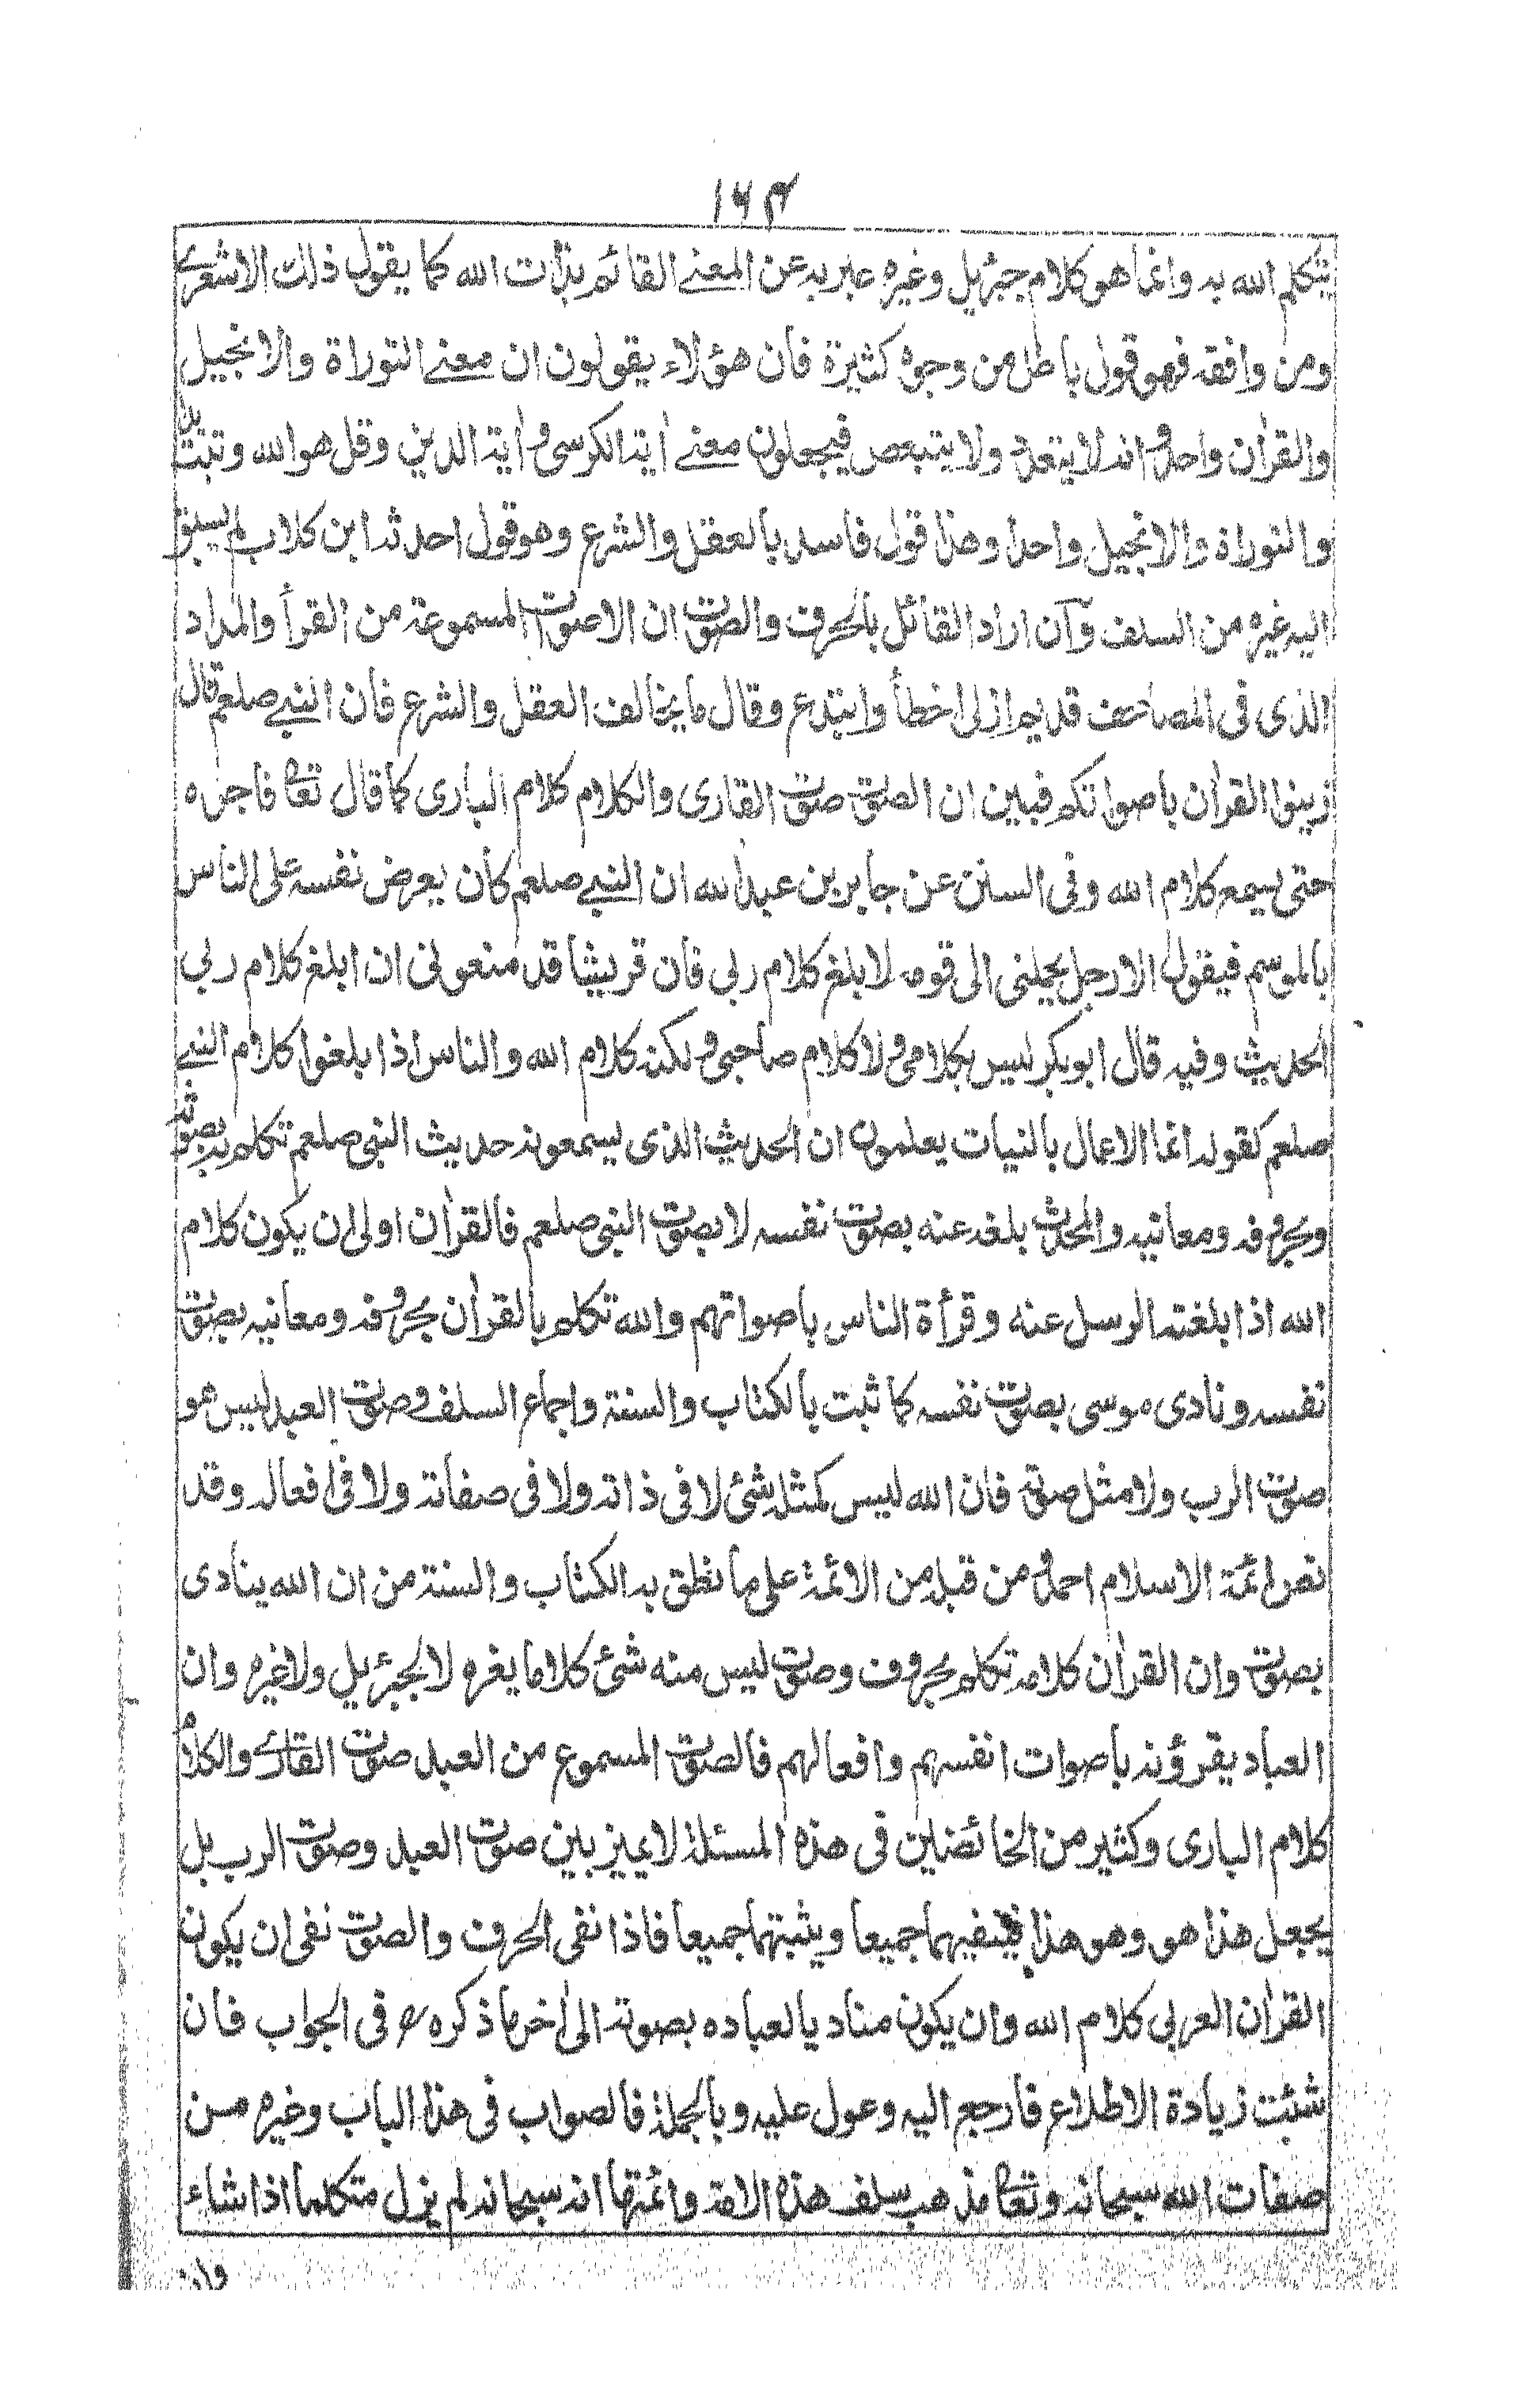 ١٦٣
يتكلم الله به وانما هو كلام جبرئيل وغيره عبر به عن المعنے القائم بذات الله كما يقول ذلك الاشعرے
ومن وافقه فهو قول باطل من وجوه كثيرة فان هؤلاء يقولون ان معنے التوراة والانجيل
والقرأن واحد وانه لا يتعدد ولا يتبعض فيجعلون معنے أية الكرسي و أية الدين وقل هو الله وتبت يدا
والتوراة والانجيل واحدا وهذا قول فاسد بالعقل والشرع وهو قول احدثه ابن كلاب لم يسبق
اليه غيره من السلف وآن اراد القائل بالحرف والصوت ان الاصوات المسموعة من القرأ والمداد
الذى فى المصاحف قديم ازلى اخطأ وابتدع وقال ما يخالف العقل والشرع فان النبے صلعم قال
زينوا القرأن باصواتكم فبين ان الصوت صوت القارى والكلام كلام البارى كما قال تعا فاجره
حتى يسمع كلام الله وفى السنن عن جابر بن عبد الله ان النبے صلعم كان يعرض نفسه على الناس
بالموسم فيقول الا رجل يحملنى الى قومه لابلغ كلام ربى فان قريشا قد منعونى ان ابلغ كلام ربى
الحديث وفيه قال ابو بكر ليس بكلامى ولا كلام صاحبى ولكنه كلام الله والناس اذا بلغوا كلام النبے
صلعم كقوله انما الاعمال بالنيات يعلمون ان الحديث الذى يسمعونه حديث النبى صلعم تكلم به بصوته
وبحروفه ومعانيه والمحدث بلغه عنه بصوت نفسه لا بصوت النبى صلعم فالقرأن اولى ان يكون كلام
الله اذا بلغته الرسل عنه وقرأة الناس باصواتهم والله تكلم بالقرأن بحروفه ومعانيه بصوت
نفسه ونادى موسى بصوت نفسه كما ثبت بالكتاب والسنة واجماع السلف وصوت العبد ليس هو
صوت الرب ولا مثل صوته فان الله ليس كمثله شئ لا فى ذاته ولا فى صفاته ولا فى افعاله وقد
نص ائمة الاسلام احمد ومن قبله من الائمة على ما نطق به الكتاب والسنة من ان الله ينادى
بصوت وان القرأن كلامه تكلم بحروف وصوت ليس منه شئ كلاما يغره لا لجبرئيل ولا غيره وان
العباد يقرؤنه باصوات انفسهم وافعالهم فالصوت المسموع من العبد صوت القارے والكلام
كلام البارى وكثير من الخائضين فى هذه المسئلة لا يميز بين صوت العبد وصوت الرب بل
يجعل هذا هو وهو هذا فينفيهما جميعا ويثبتهما جميعا فاذا نفى الحرف والصوت نفى ان يكون
القرأن العربى كلام الله وان يكون مناديا لعباده بصوته الى أخر ما ذكره فى الجواب فان
شئت زيادة الاطلاع فارجع اليه وعول عليه وبالجملة فالصواب فى هذا الباب وغيره من
صفات الله سبحانه وتعا مذهب سلف هذه الامة وائمتها انه سبحانه لم يزل متكلما اذا شاء
وان